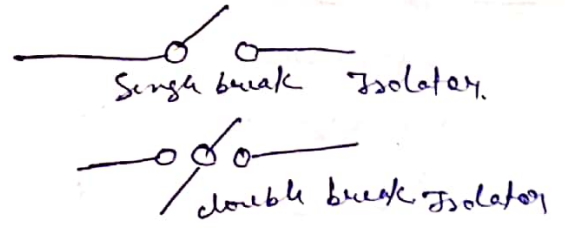 Single break Isolator.
double break Isolator